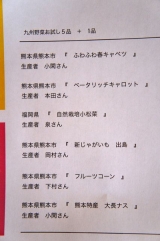 九州野菜お試し5品 + 1品
熊本県熊本市 『 ふわふわ春キャベツ 』
生産者 小関さん
熊本県熊本市 『 ベータリッチキャロット 』
生産者 本田さん
福岡県 『 自然栽培小松菜 』
生産者 泉さん
熊本県熊本市 『 新じゃがいも 出島 』
生産者 岡村さん
熊本県熊本市 『 フルーツコーン 』
生産者 下村さん
熊本県熊本市 『 熊本特産 大長ナス 』
生産者 小関さん